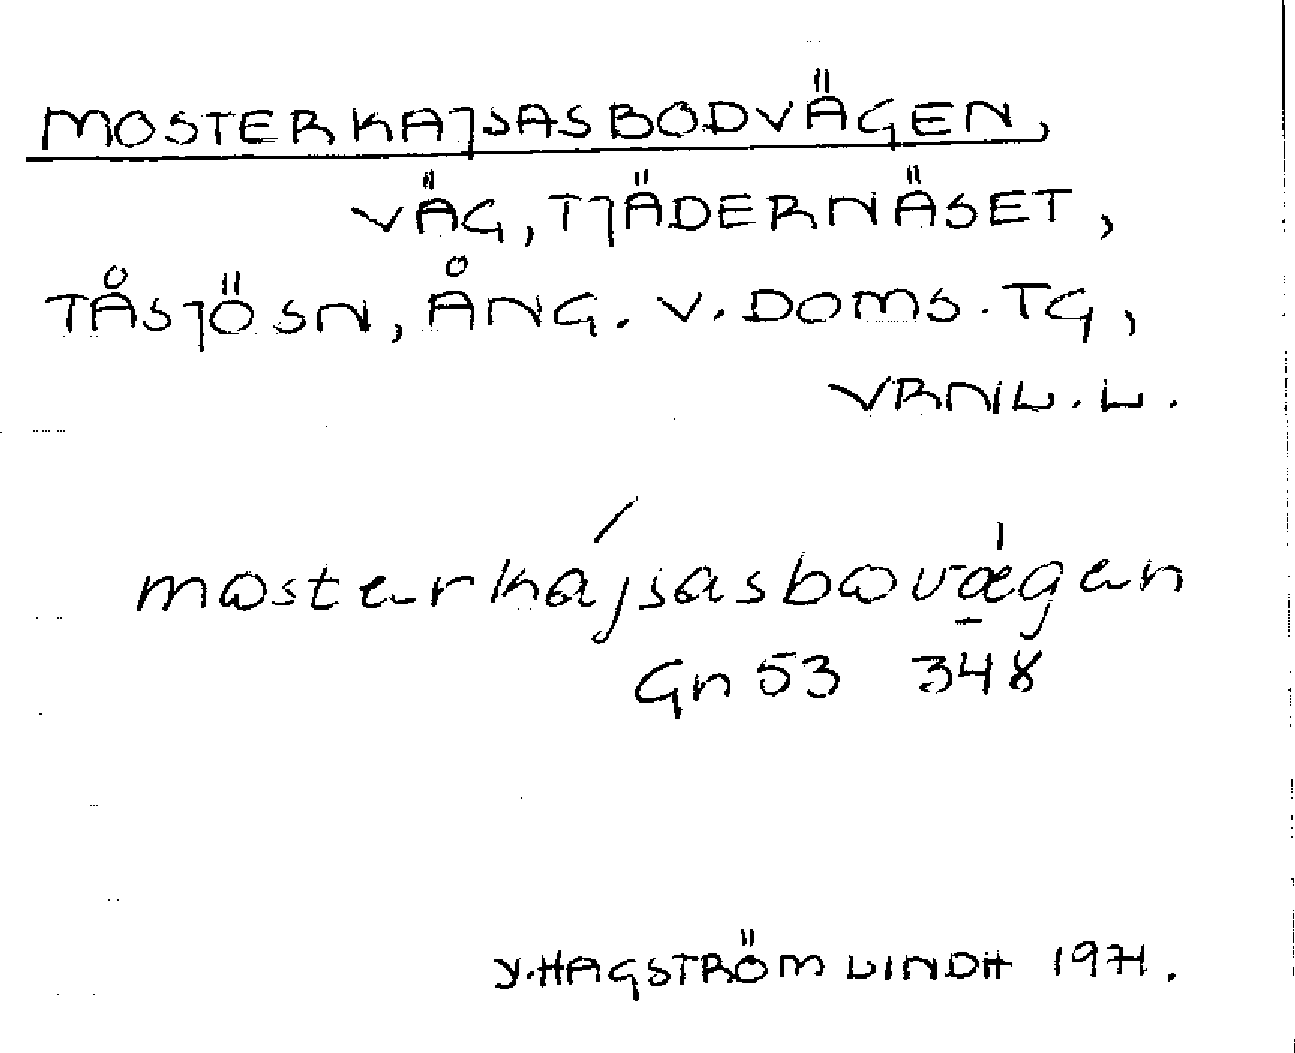 MOSTERKAJSASBODVÄGEN,
VÄG, TJÄDERNÄSET,
TÅSJÖ SN, ÅNG. V. DOMS. TG,
VRNL. L.
mosterkájsasbovæ̱gen
Gn 53 348
Y. HAGSTRÖM LINDH 1971.